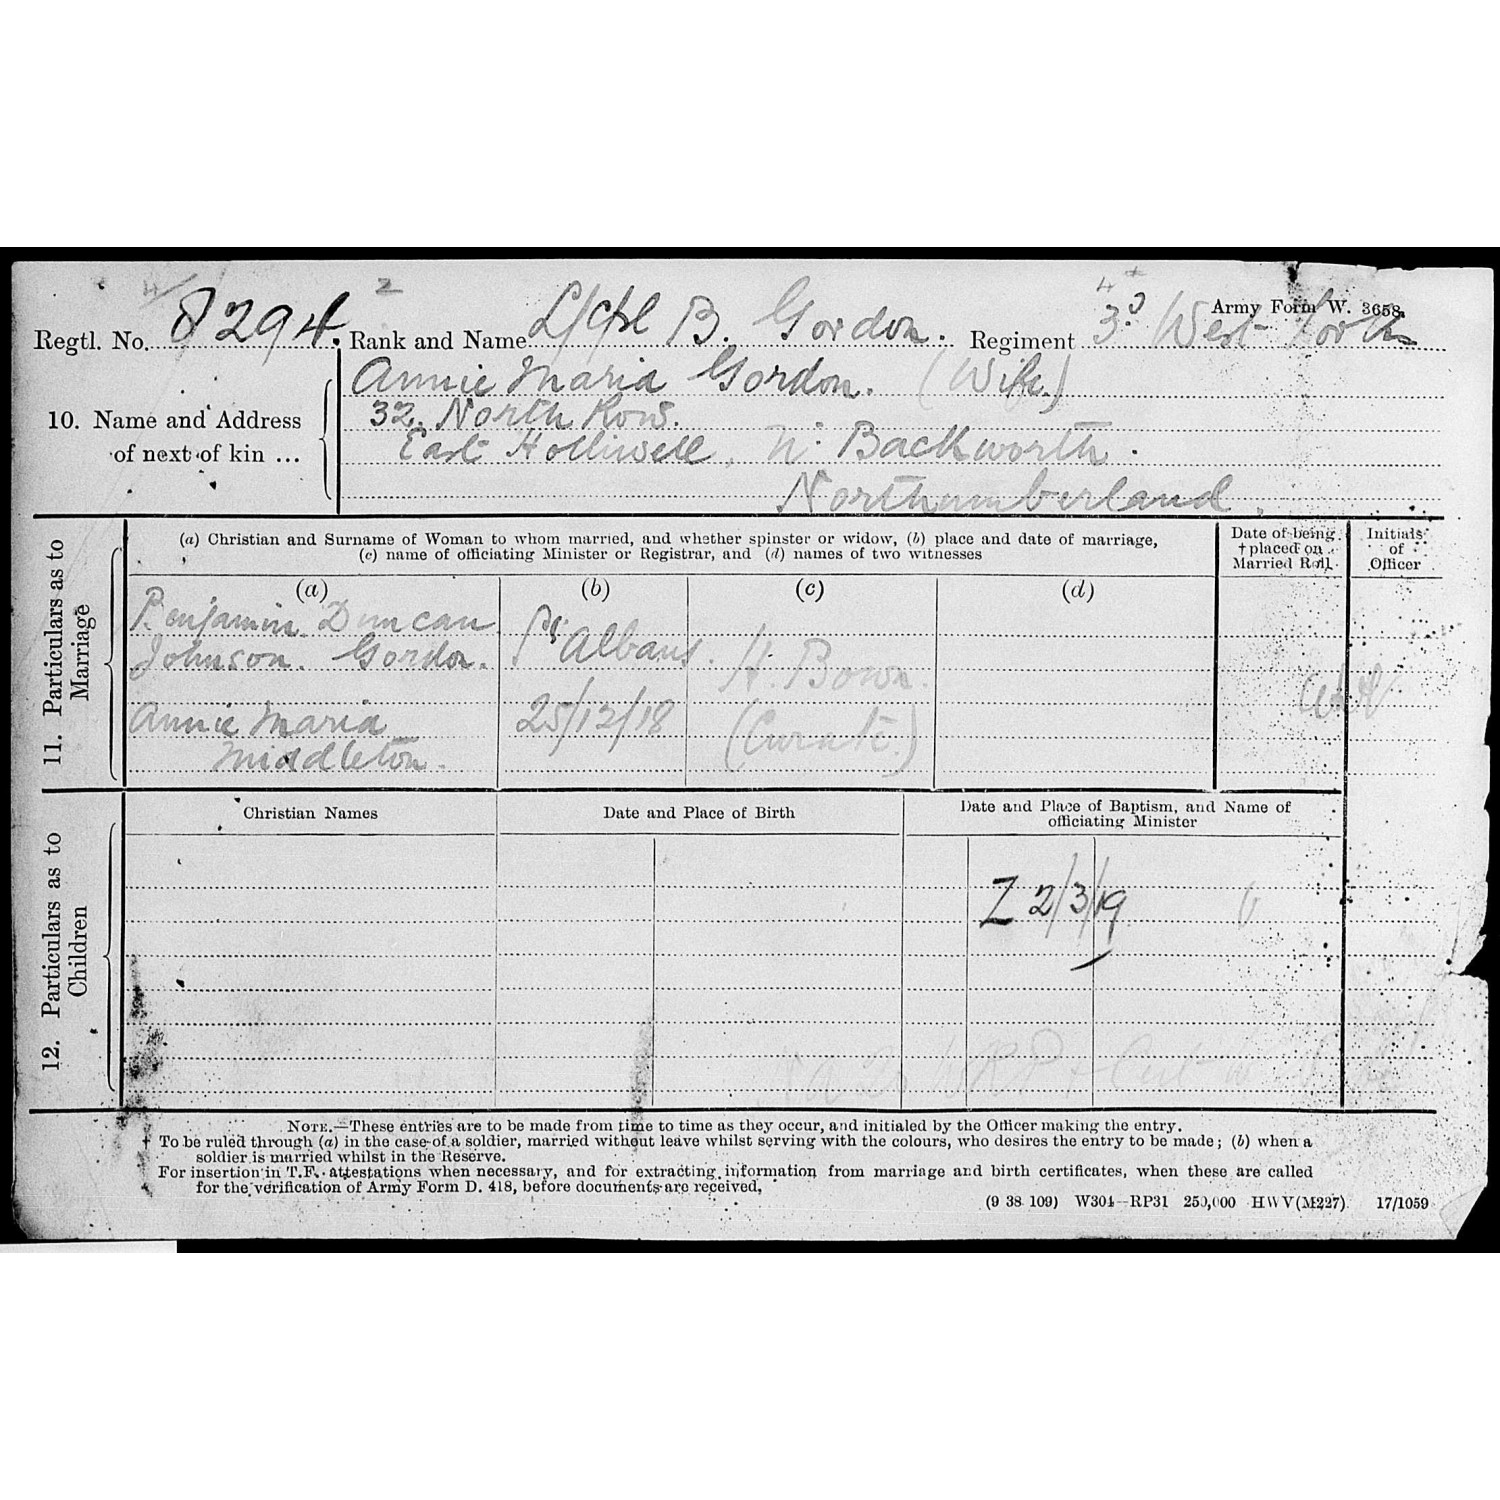 Army Form W. 3658.
Regtl. No. 8294. Rank and Name L/Cpl B. Gordon. Regiment 3. West Yorks
10. Name and Address of next of kin ...
Annie Maria Gordon. (Wife.)
32, North Row.
East Holliwell, Nr Backworth.
Northumberland.
11. Particulars as to Marriage
(a) Christian and Surname of Woman to whom married, and whether spinster or widow, (b) place and date of marriage,
(c) name of officiating Minister or Registrar, and (d) names of two witnesses
Date of being
† placed on
Married Roll
Initials
of
Officer
(a) (b) (c) (d)
Benjamin Duncan
Johnson. Gordon. St Albans. H. Bown.
Annie Maria 25/12/18 (Curate.)
Middleton.
12. Particulars as to Children
Christian Names
Date and Place of Birth
Date and Place of Baptism, and Name of
officiating Minister
Z 2/3/19
NOTE.—These entries are to be made from time to time as they occur, and initialed by the Officer making the entry.
† To be ruled through (a) in the case of a soldier, married without leave whilst serving with the colours, who desires the entry to be made; (b) when a
soldier is married whilst in the Reserve.
For insertion in T.F. attestations when necessary, and for extracting information from marriage and birth certificates, when these are called
for the verification of Army Form D. 418, before documents are received.
(9 38 109) W304—RP31 250,000 HWV(M227) 17/1059